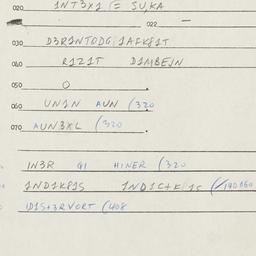 020 INT3X1 (= SUKA
022 —
030 D3R1NTODG 1AFK81T
040 R1Z1T D1MBEJN
050 O
060 UN1N AUN (320
070 AUN3XL (320
IN3R GI HINER (320
1ND1K81S 1ND1C+K 1S (190 060
ID1S+3RVORT (408